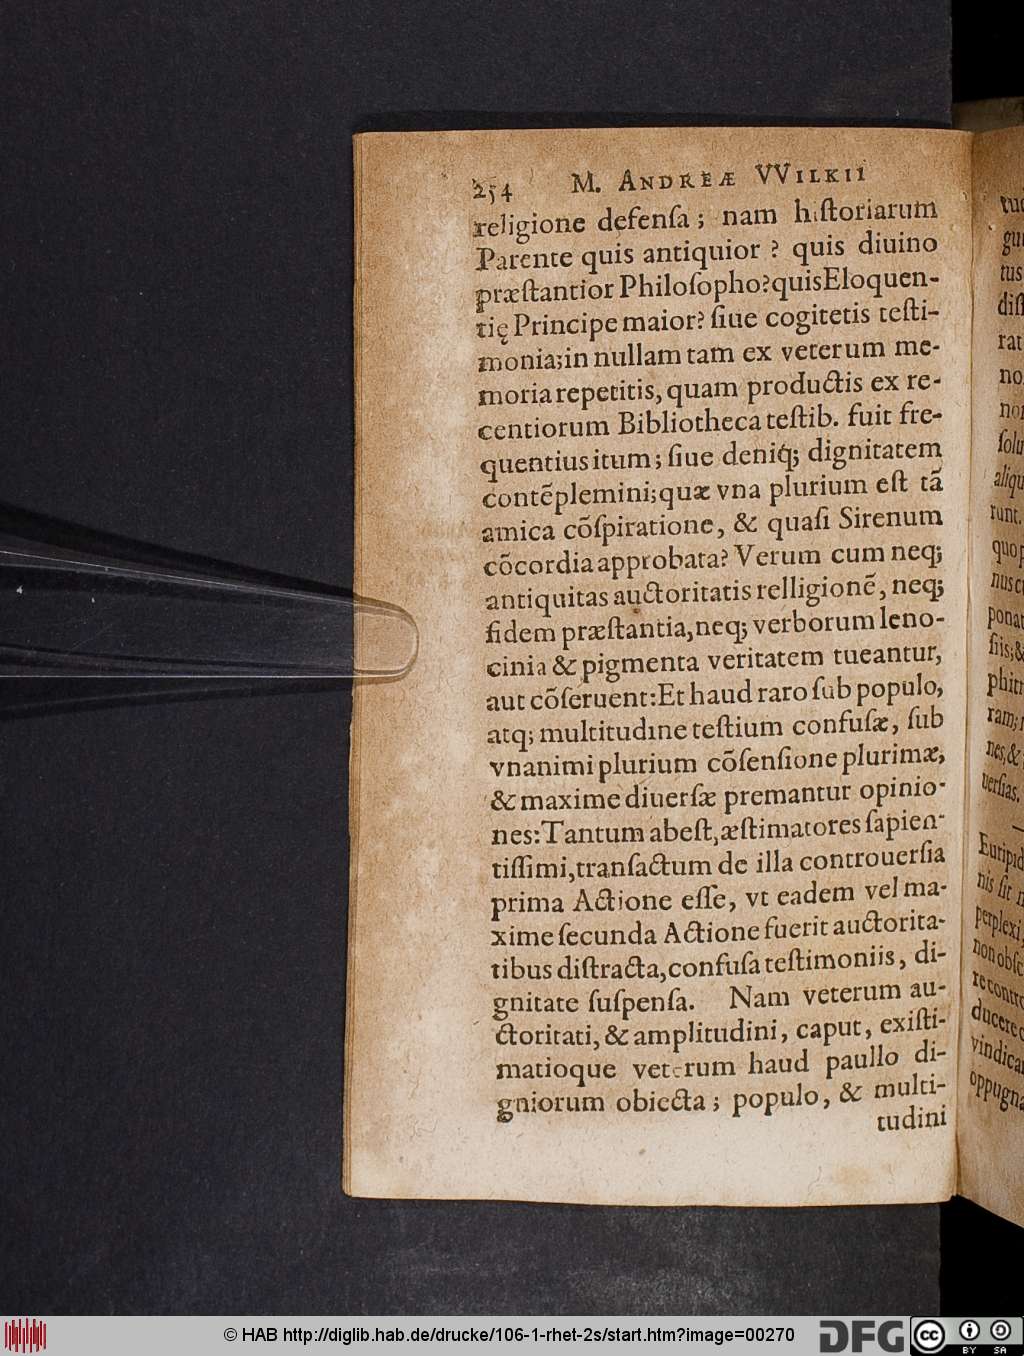 254 M. ANDREÆ VVILKII
religione defenſa; nam hiſtoriarum
Parente quis antiquior? quis diuino
præſtantior Philoſopho?quisEloquen-
tię Principe maior? ſiue cogitetis teſti-
monia;in nullam tam ex veterum me-
moria repetitis, quam productis ex re-
centiorum Bibliotheca teſtib. fuit fre-
quentius itum; ſiue deniq́; dignitatem
contẽplemini;quæ vna plurium eſt tã
amica cõſpiratione, & quaſi Sirenum
cõcordia approbata? Verum cum neq;
antiquitas auctoritatis relligionẽ, neq;
fidem præſtantia,neq; verborum leno-
cinia & pigmenta veritatem tueantur,
aut cõſeruent:Et haud raro ſub populo,
atq; multitudine teſtium confuſæ, ſub
vnanimi plurium cõſenſione plurimæ,
& maxime diuerſæ premantur opinio-
nes:Tantum abeſt,æſtimatores ſapien-
tiſſimi,tranſactum de illa controuerſia
prima Actione eſſe, vt eadem vel ma-
xime ſecunda Actione fuerit auctorita-
tibus diſtracta,confuſa teſtimoniis, di-
gnitate ſuſpenſa. Nam veterum au-
ctoritati, & amplitudini, caput, exiſti-
matioque veterum haud paullo di-
gniorum obiecta; populo, & multi-
tudini
tus
diſ
rat
ſolu
aliqu
runt.
quo p
nus c
ponat
ſiis;&
phitr
ram;
nes, &
uerſias.
Euripid
nis ſit n
perplexi
non obſc
re contro
ducere c
vindica
oppugna
© HAB http://diglib.hab.de/drucke/106-1-rhet-2s/start.htm?image=00270
DFG
cc BY SA